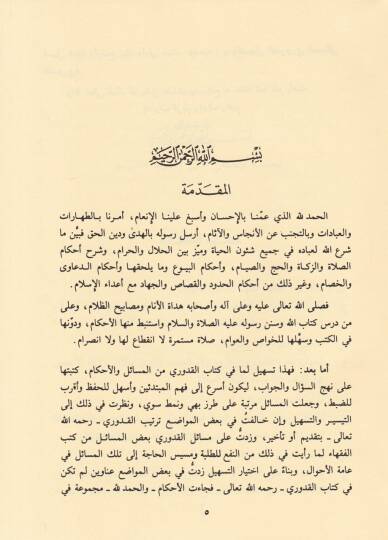 بسم الله الرحمن الرحيم
المقدّمة
الحمد لله الذي عمّنا بالإحسان وأسبغ علينا الإنعام، أمرنا بالطهارات
والعبادات وبالتجنب عن الأنجاس والآثام، أرسل رسوله بالهدى ودين الحق فبيّن ما
شرع الله لعباده في جميع شئون الحياة وميّز بين الحلال والحرام، وشرح أحكام
الصلاة والزكاة والحج والصيام، وأحكام البيوع وما يلحقها وأحكام الدعاوى
والخصام، وغير ذلك من أحكام الحدود والقصاص والجهاد مع أعداء الإسلام.
فصلى الله تعالى عليه وعلى آله وأصحابه هداة الأنام ومصابيح الظلام، وعلى
من درس كتاب الله وسنن رسوله عليه الصلاة والسلام واستنبط منها الأحكام، ودوّنها
في الكتب وسهّلها للخواص والعوام، صلاة مستمرة لا انقطاع لها ولا انصرام.
أما بعد: فهذا تسهيل لما في كتاب القدوري من المسائل والأحكام، كتبتها
على نهج السؤال والجواب، ليكون أسرع إلى فهم المبتدئين وأسهل للحفظ وأقرب
للضبط، وجعلت المسائل مرتبة على طرز بهي ونمط سوي، ونظرت في ذلك إلى
التيسير والتسهيل وإن خالفتُ في بعض المواضع ترتيب القدوري ـ رحمه الله
تعالى ـ بتقديم أو تأخير، وزدتُ على مسائل القدوري بعض المسائل من كتب
الفقهاء لما رأيت في ذلك من النفع للطلبة ومسيس الحاجة إلى تلك المسائل في
عامة الأحوال، وبناءً على اختيار التسهيل زدتُ في بعض المواضع عناوين لم تكن
في كتاب القدوري ـ رحمه الله تعالى ـ فجاءت الأحكام ـ والحمد لله ـ مجموعة في
٥